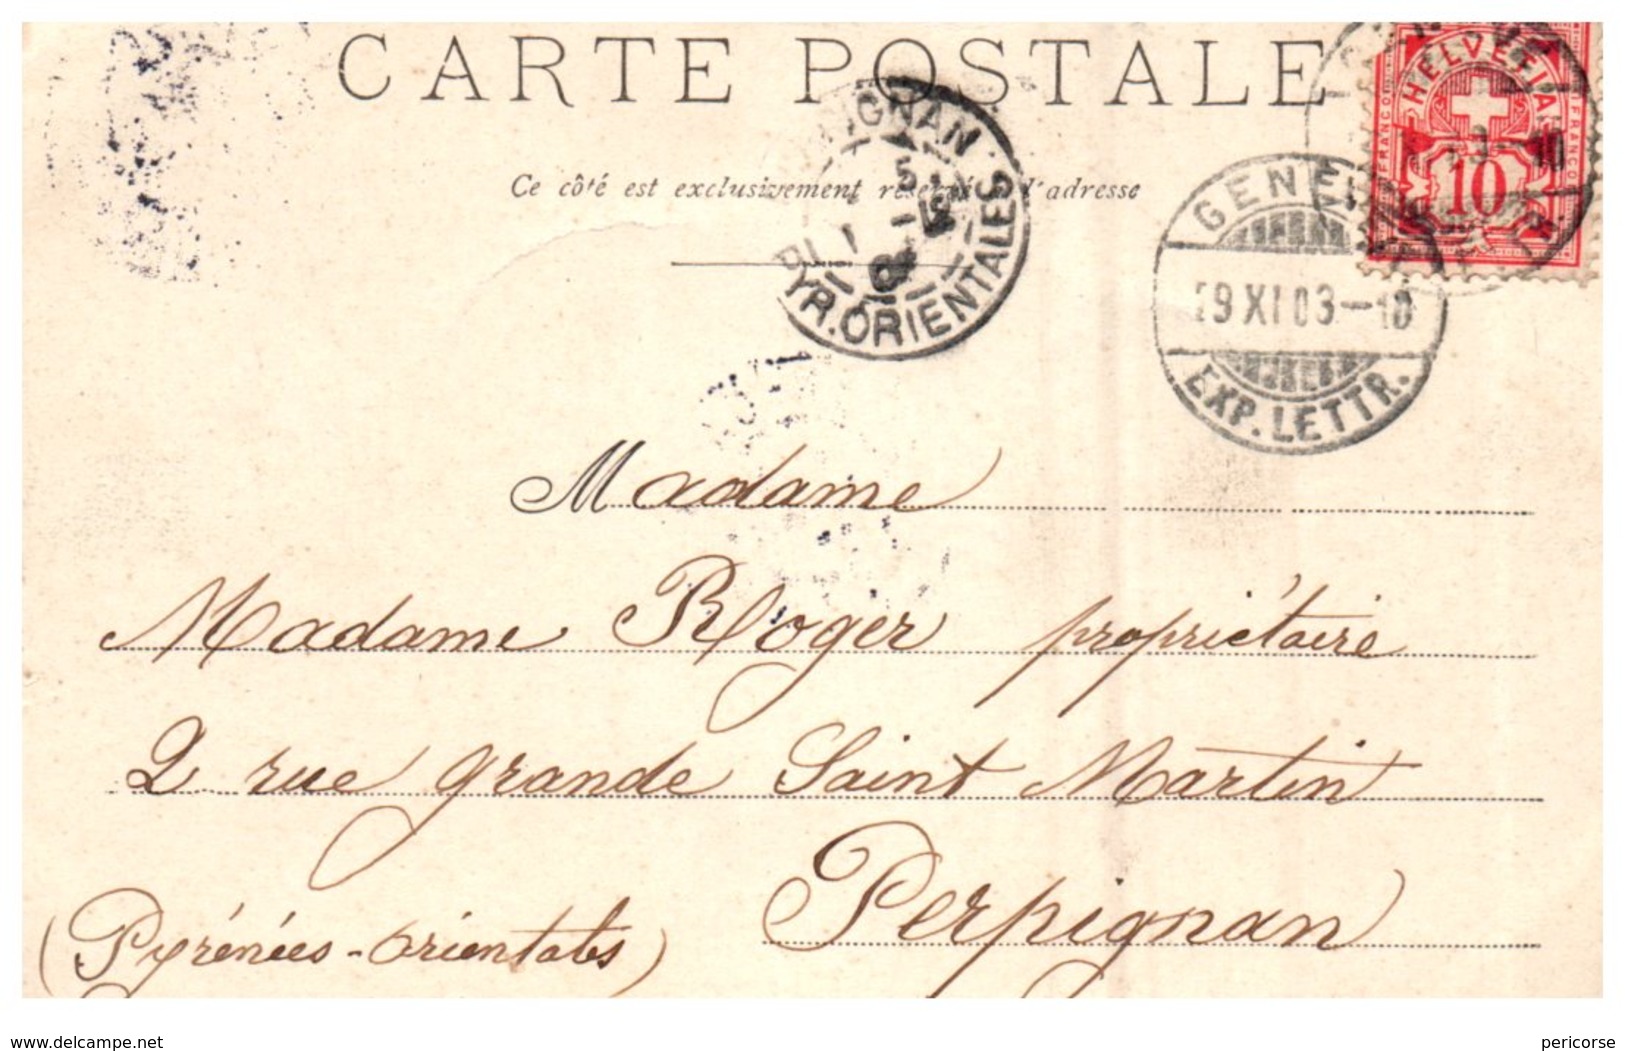 CARTE POSTALE
Ce côté est exclusivement réservé à l'adresse
HELVETIA
FRANCO FRANCO
10
PYR. ORIENTALES
GENÈVE
29 XI 03–10
EXP. LETTR.
Madame
Madame Roger propriétaire
2 rue grande Saint Martin
Perpignan
(Pyrénées-orientales)
www.delcampe.net
pericorse